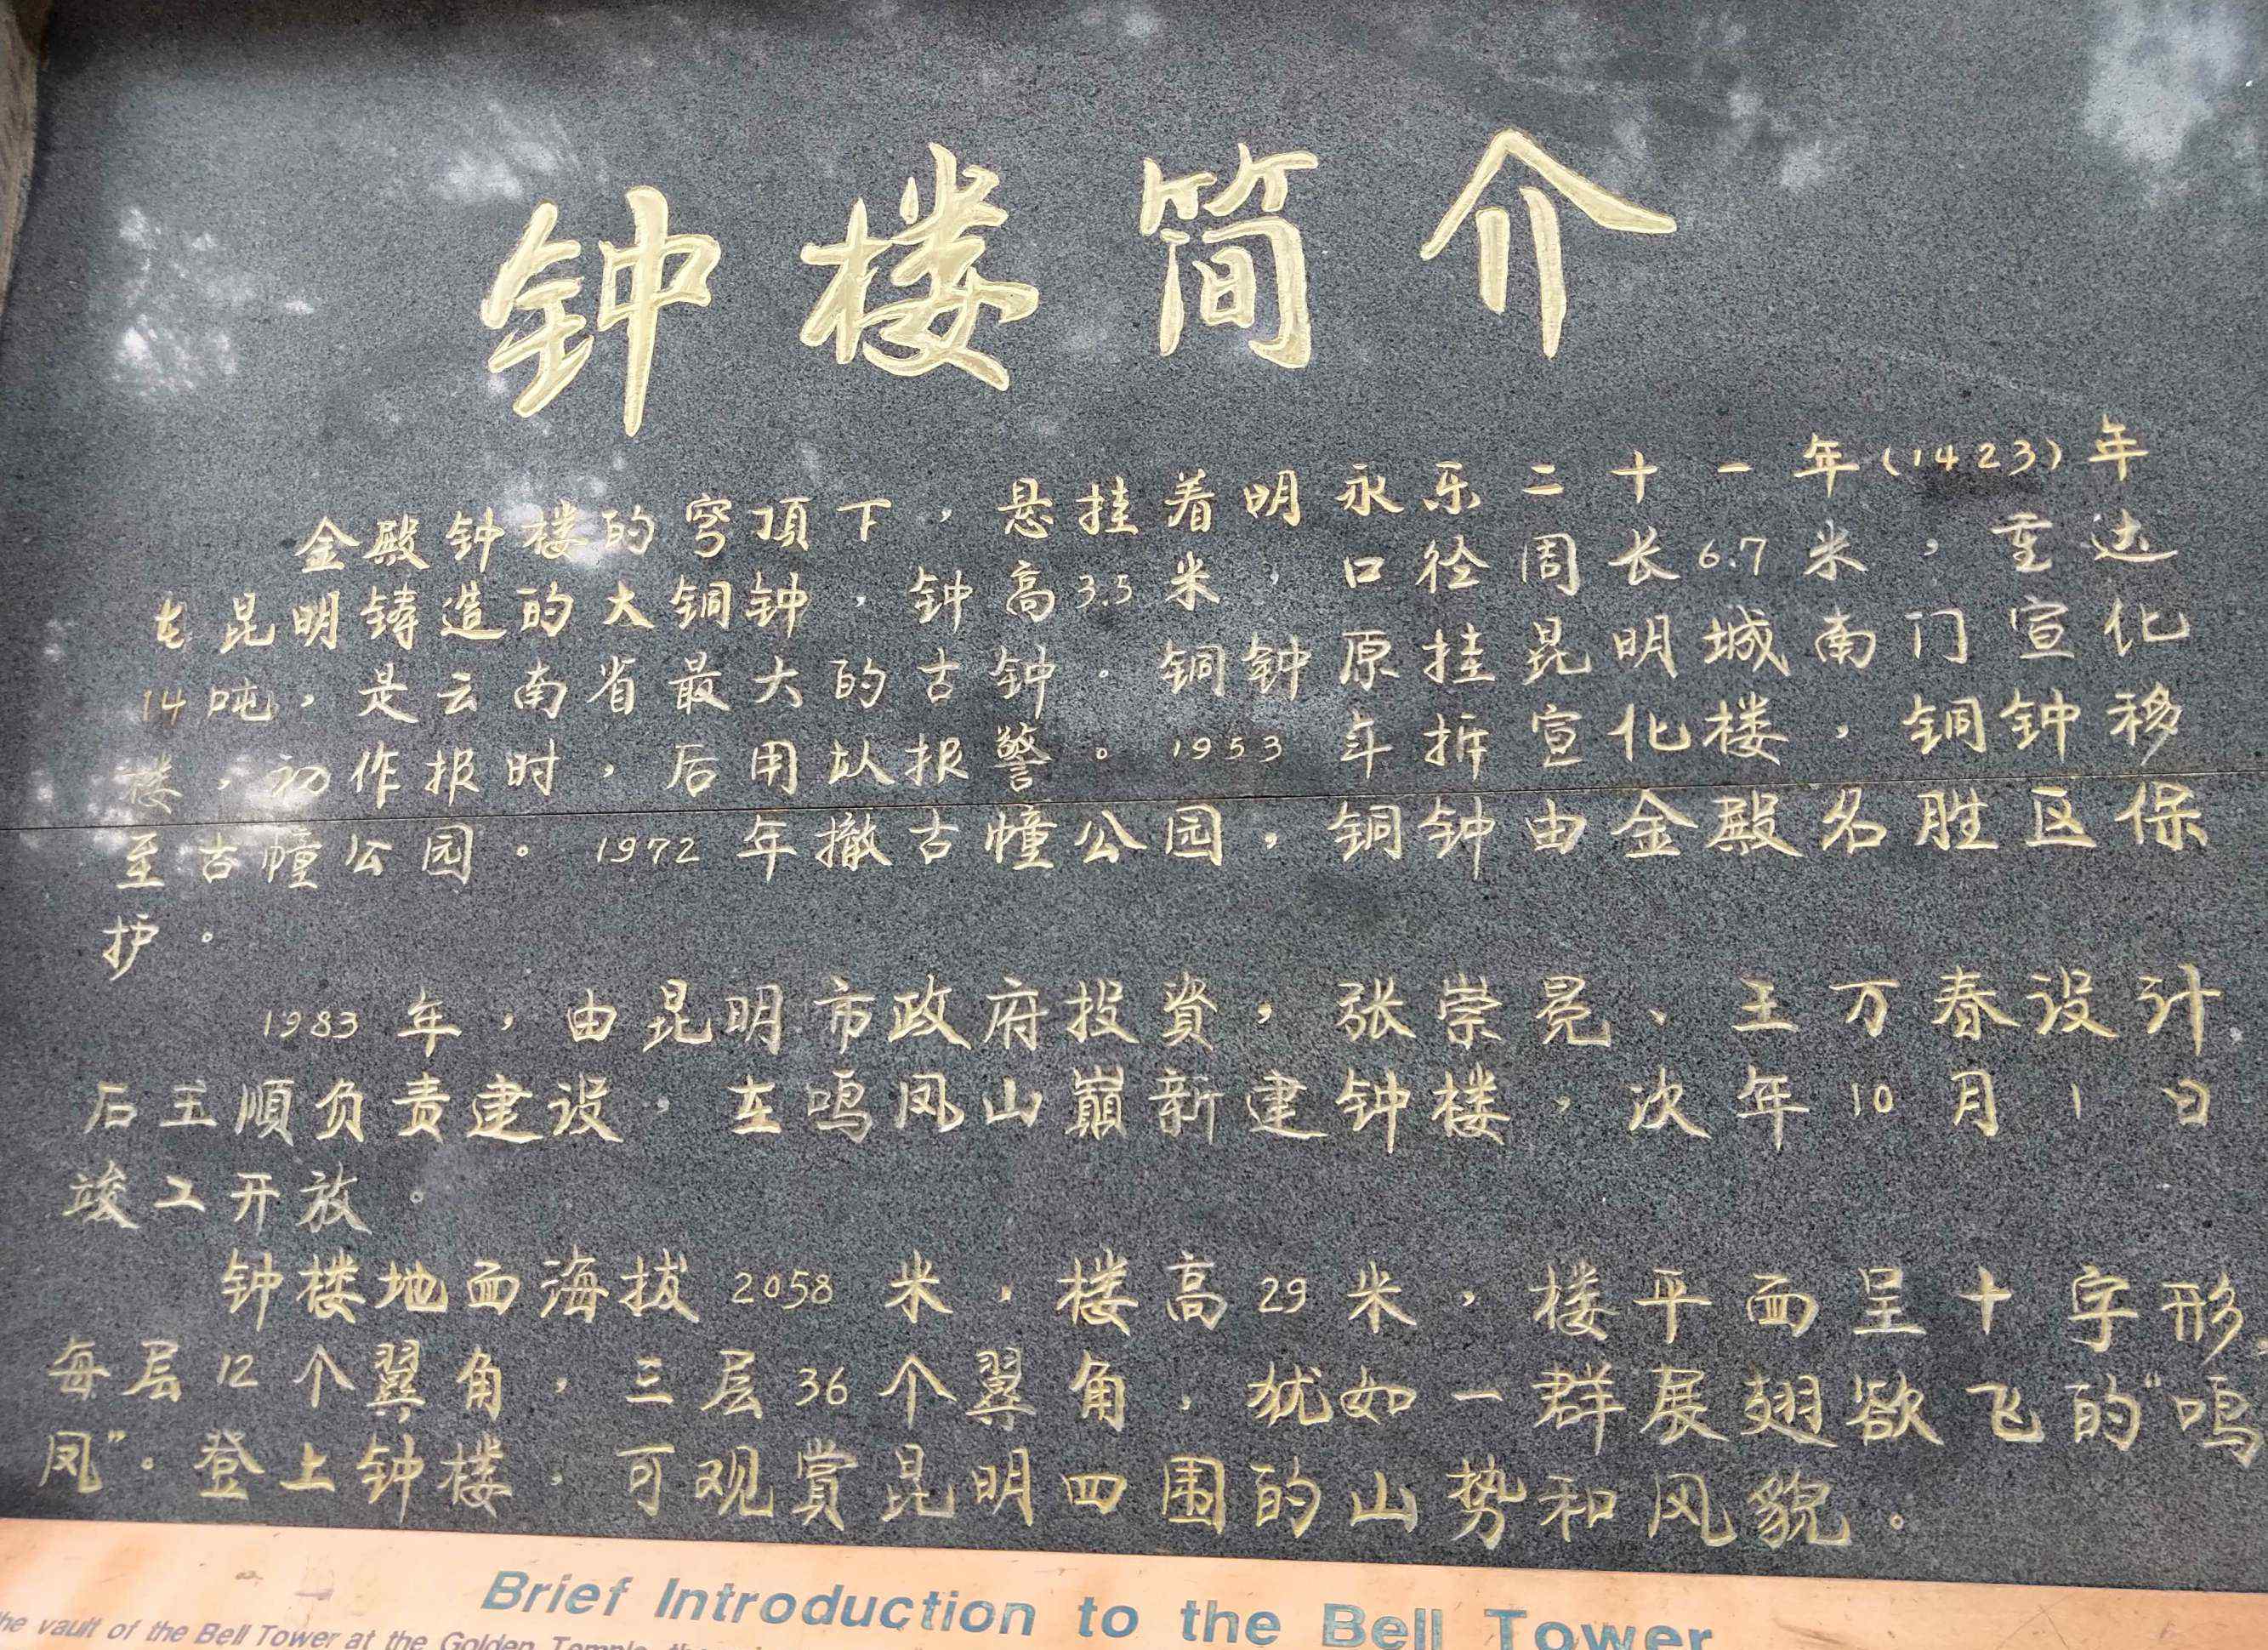 钟楼简介
金殿钟楼的穹頂下，悬挂着明永乐二十一年(1423)年
在昆明铸造的大铜钟，钟高3.5米，口径周长6.7米，重达
14吨，是云南省最大的古钟。铜钟原挂昆明城南门宣化
楼，初作报时，后用以报警。1953年拆宣化楼，铜钟移
至古幢公园。1972年撤古幢公园，铜钟由金殿名胜区保
护。
1983年，由昆明市政府投資，张崇冕、王万春设计
后王順负责建设，在鸣凤山巔新建钟楼，次年10月1日
竣工开放。
钟楼地面海拔2058米，楼高29米，楼平面呈十字形，
每层12个翼角，三层36个翼角，犹如一群展翅欲飞的“鸣
凤”。登上钟楼，可观賞昆明四围的山势和风貌。
Brief Introduction to the Bell Tower
he vault of the Bell Tower at the Golden Temple